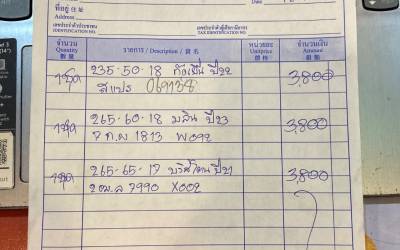 ที่อยู่ 住址
Address
เลขประจำตัวประชาชน
IDENTIFICATION NO.
เลขประจำตัวผู้เสียภาษีอากร
TAX IDENTIFICATION NO.
จำนวน
Quantity
數量
รายการ / Description / 貨名
หน่วยละ
Unitprice
價格
จำนวนเงิน
Amount
銀額
1ชุด 235-50-18 ปี22 3,800
สีแปร 069138
1ชุด 265-60-18 ปี23 3,800
7กผ 1813 W092
1ชุด 265-65-17 ปี21 3,800
2ฒล 7990 X002